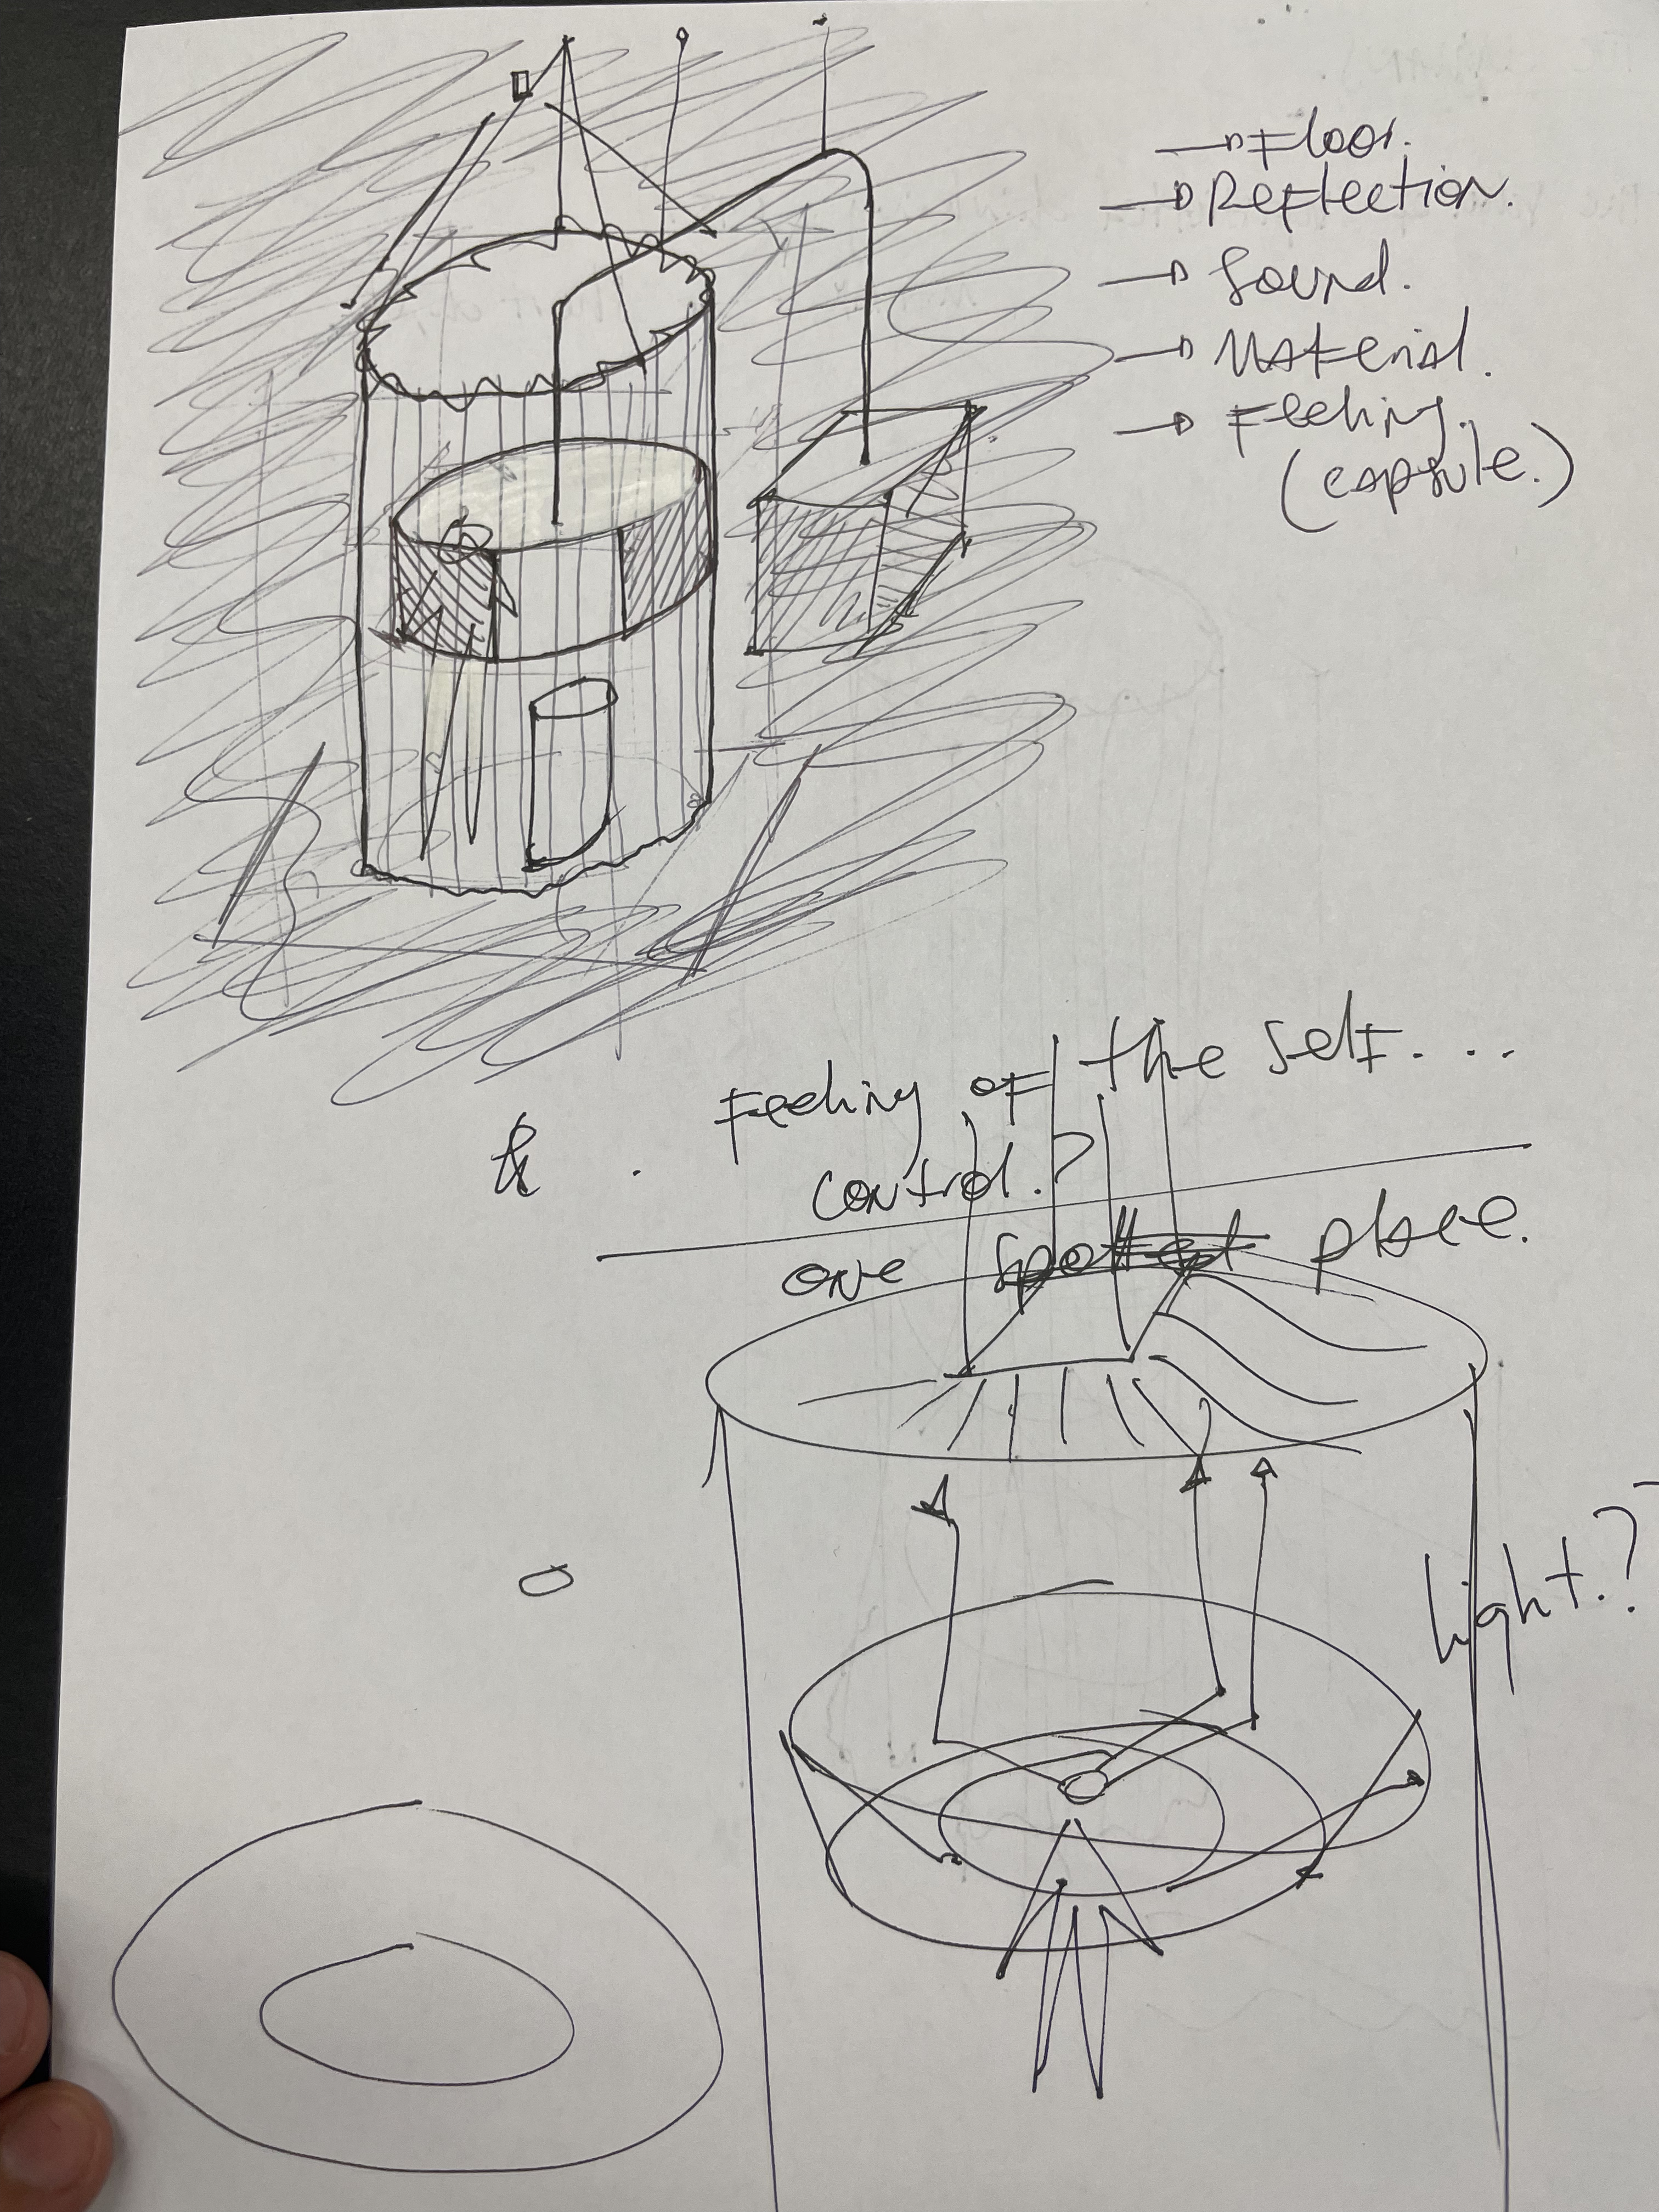 Floor.
Reflection.
Sound.
Material.
Feeling.
(capsule.)
Feeling of the self. ...
&
control.?
one spotted place.
light.?